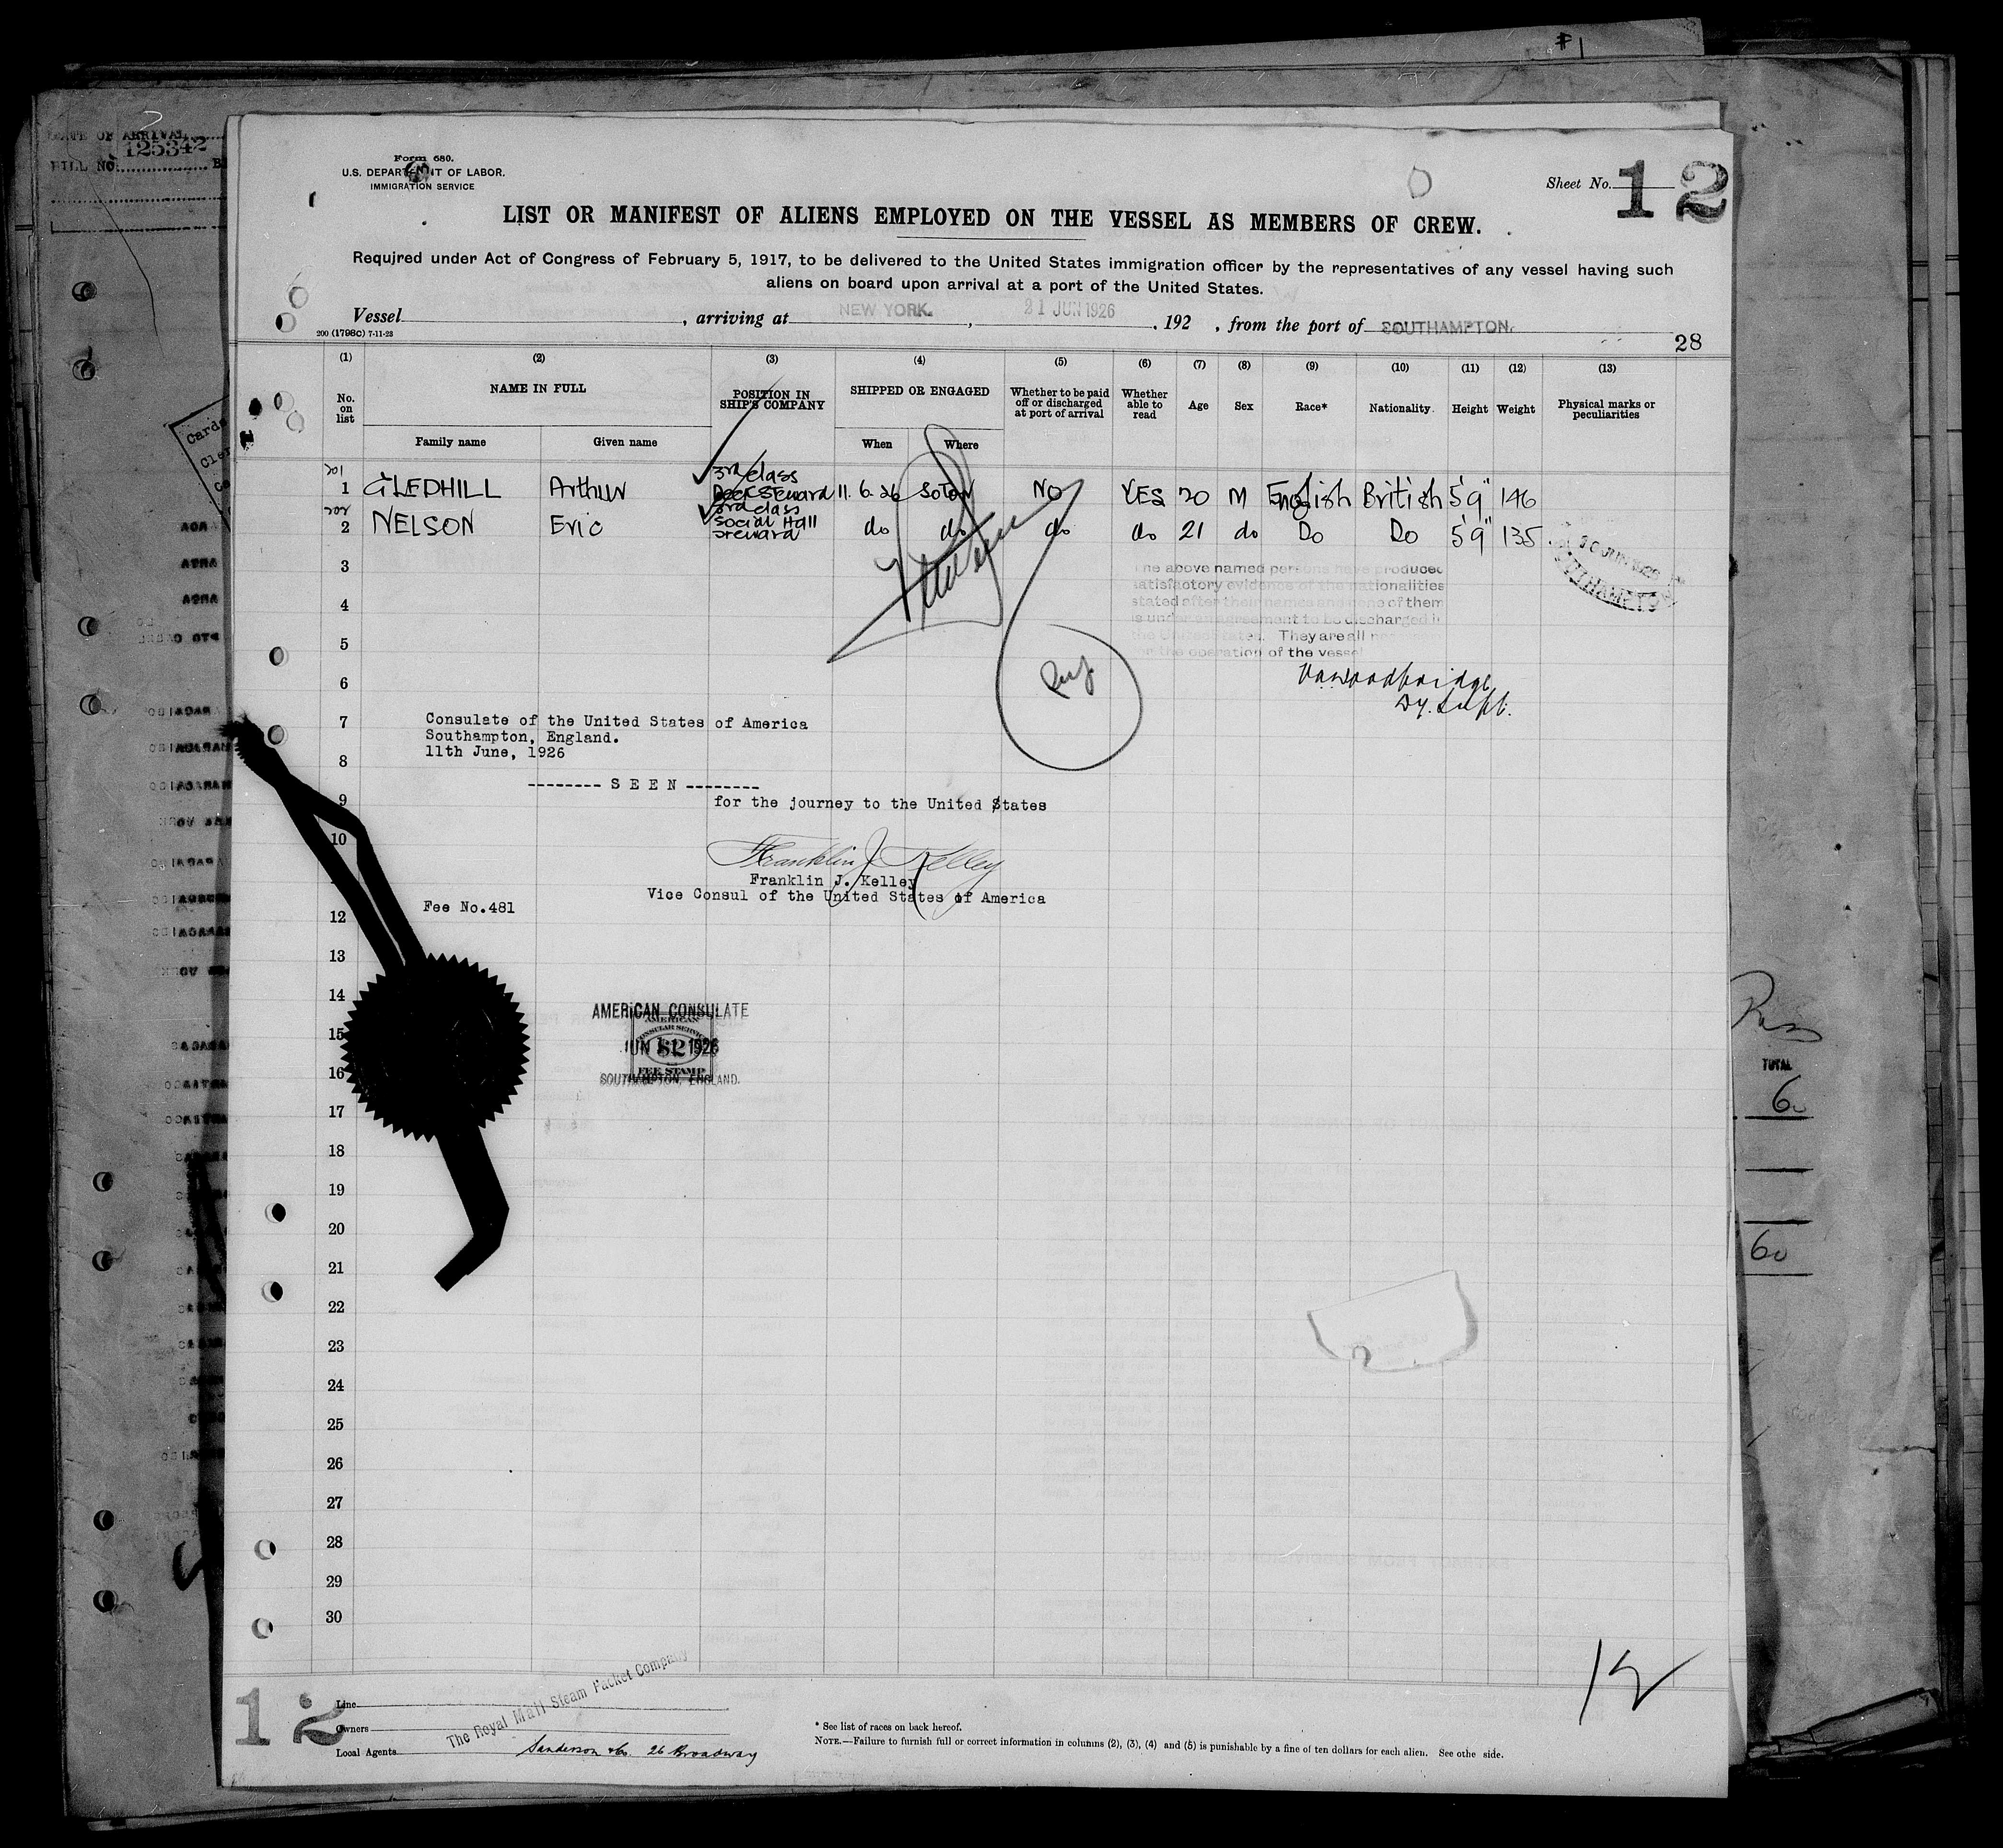 #1
DATE OF ARRIVAL
125342
BILL NO.
Form 680.
U.S. DEPARTMENT OF LABOR.
IMMIGRATION SERVICE
Sheet No. 12
LIST OR MANIFEST OF ALIENS EMPLOYED ON THE VESSEL AS MEMBERS OF CREW.
Required under Act of Congress of February 5, 1917, to be delivered to the United States immigration officer by the representatives of any vessel having such
aliens on board upon arrival at a port of the United States.
Vessel , arriving at NEW YORK. , 21 JUN 1926 , 192 , from the port of SOUTHAMPTON.
200 (1798C) 7-11-23
28
(1) (2) (3) (4) (5) (6) (7) (8) (9) (10) (11) (12) (13)
No. on list NAME IN FULL POSITION IN SHIP'S COMPANY SHIPPED OR ENGAGED Whether to be paid off or discharged at port of arrival Whether able to read Age Sex Race* Nationality Height Weight Physical marks or peculiarities
Family name Given name When Where
201 3rd class
1 GLEDHILL Arthur Deck Steward 11.6.26 SoTon NO YES 20 M English British 5'9" 146
202 3rd class
2 NELSON Eric Social Hall Steward do do do do 21 do Do Do 5'9" 135
3
The above named persons have produced
satisfactory evidence of the nationalities
4
stated after their names and none of them
is under an agreement to be discharged in
5
the United States. They are all
for the operation of the vessel
6
Dy. Supt.
7
Consulate of the United States of America
Southampton, England.
11th June, 1926
8
-------- S E E N --------
9
for the journey to the United States
10
Franklin J. Kelley
Franklin J. Kelley
Vice Consul of the United States of America
Fee No.481
12
13
14
AMERICAN CONSULATE
AMERICAN
CONSULAR SERVICE
15
JUN 11 1926
$2
FEE STAMP
16
SOUTHAMPTON, ENGLAND.
17
18
19
20
21
22
23
24
25
26
27
28
29
30
TOTAL
60
60
12
12
Line
Owners
The Royal Mail Steam Packet Company
Local Agents Sanderson & Co. 26 Broadway
* See list of races on back hereof.
NOTE.—Failure to furnish full or correct information in columns (2), (3), (4) and (5) is punishable by a fine of ten dollars for each alien. See othe side.